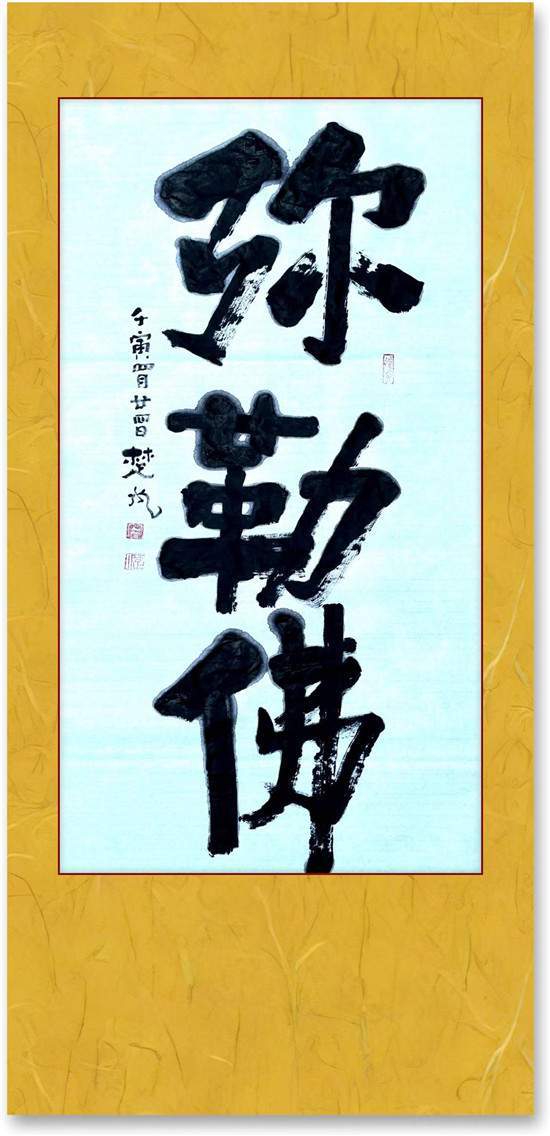 弥勒佛
壬寅四月廿四日楚风